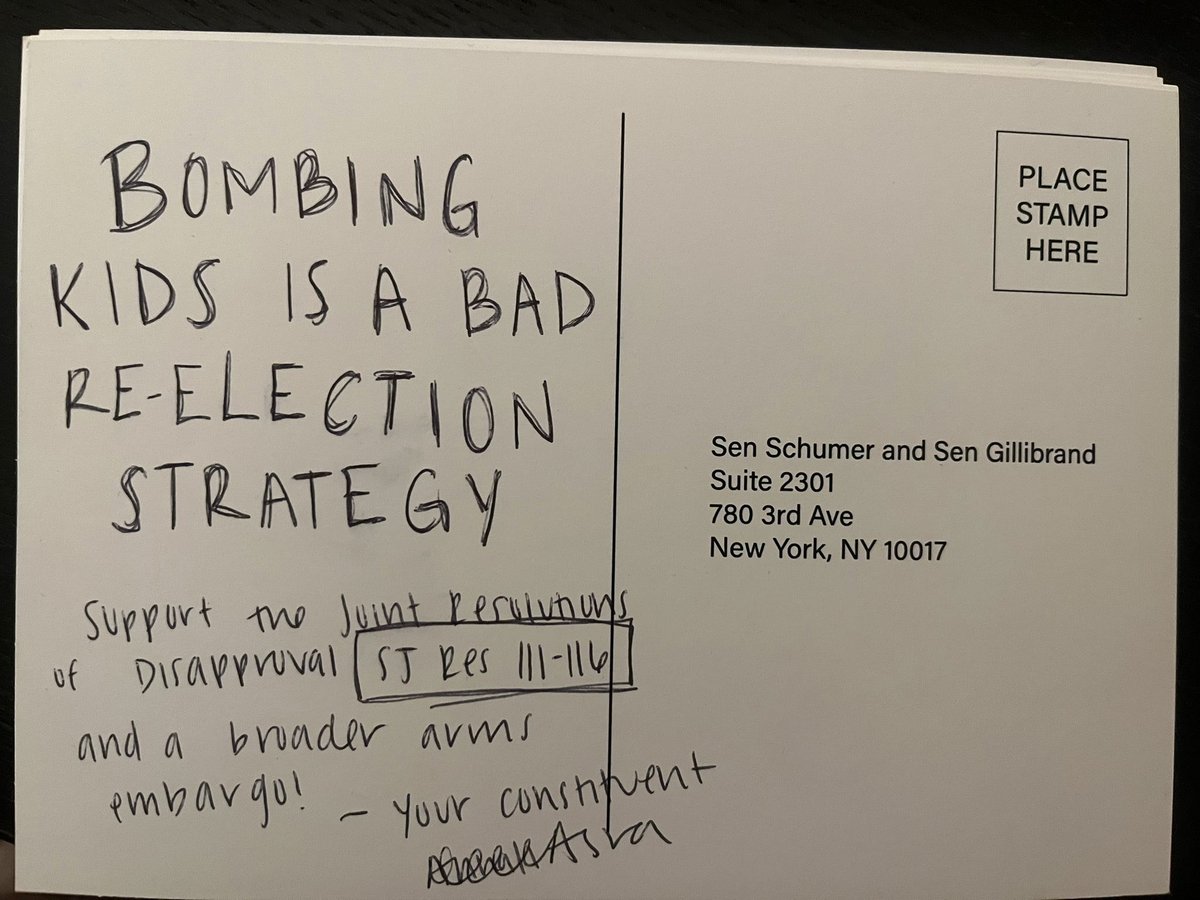 BOMBING
KIDS IS A BAD
RE-ELECTION
STRATEGY
Support the Joint Resolutions
of Disapproval SJ Res 111-116
and a broader arms
embargo!
– your constituent
Asra
PLACE
STAMP
HERE
Sen Schumer and Sen Gillibrand
Suite 2301
780 3rd Ave
New York, NY 10017